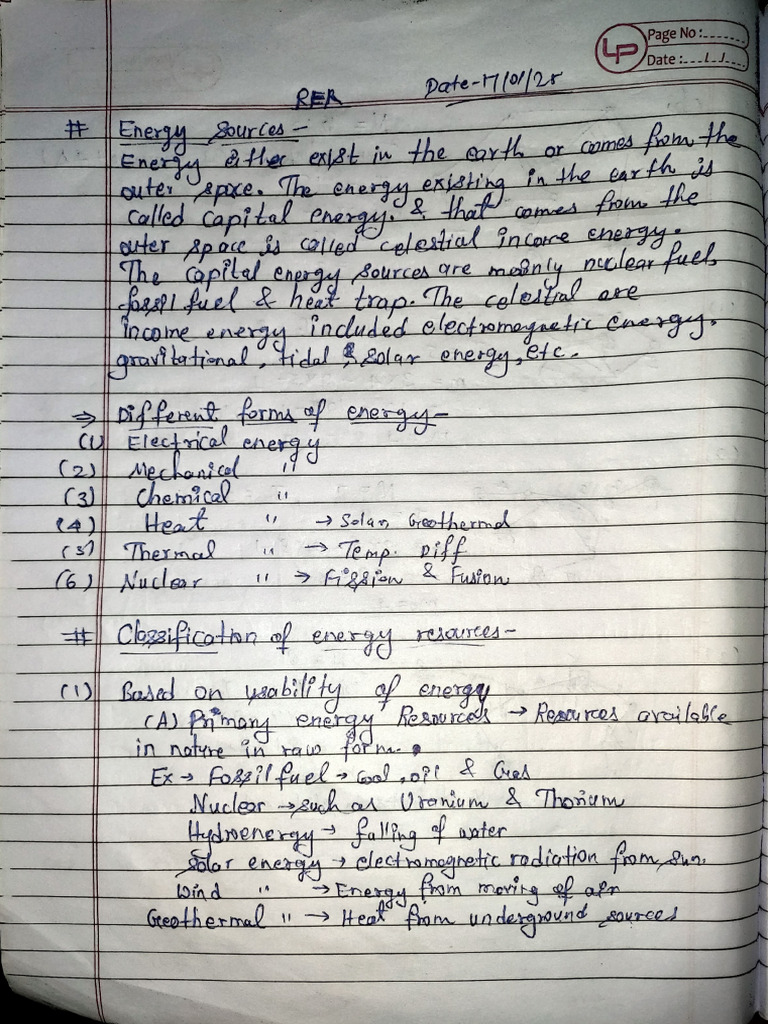 LP Page No :.......
Date : ... / ... / ...
RER Date - 17/01/25
# Energy Sources -
Energy either exist in the earth or comes from the
outer space. The energy existing in the earth is
called capital energy. & that comes from the
outer space is called celestial income energy.
The capital energy sources are mainly nuclear fuel,
fossil fuel & heat trap. The celestial are
income energy included electromagnetic energy.
gravitational, tidal & solar energy, etc.
⇒ Different forms of energy -
(1) Electrical energy
(2) Mechanical "
(3) Chemical "
(4) Heat " → Solar Geothermal
(5) Thermal " → Temp. Diff
(6) Nuclear " → Fission & Fusion
# Classification of energy resources -
(1) Based on usability of energy
(A) Primary energy Resources → Resources available
in nature in raw form.
Ex → Fossil fuel → Coal, oil & Gas
Nuclear → such as Uranium & Thorium
Hydroenergy → falling of water
Solar energy → electromagnetic radiation from sun.
Wind " → Energy from moving of air
Geothermal " → Heat from underground sources